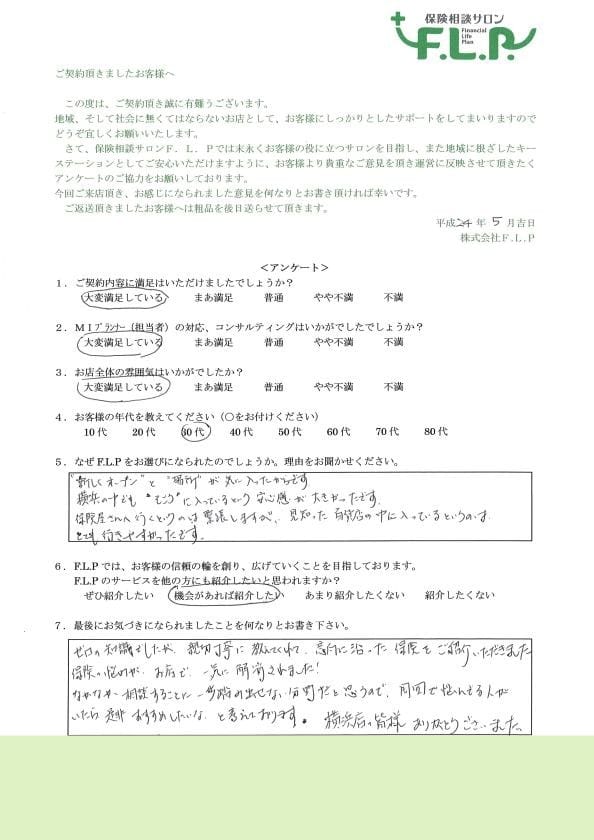 保険相談サロン
F.L.P.
Financial
Life
Plan
ご契約頂きましたお客様へ
この度は、ご契約頂き誠に有難うございます。
地域、そして社会に無くてはならないお店として、お客様にしっかりとしたサポートをしてまいりますので
どうぞ宜しくお願いいたします。
さて、保険相談サロンF．L．Pでは末永くお客様の役に立つサロンを目指し、また地域に根ざしたキー
ステーションとしてご安心いただけますように、お客様より貴重なご意見を頂き運営に反映させて頂きたく
アンケートのご協力をお願いしております。
今回ご来店頂き、お感じになられました意見を何なりとお書き頂ければ幸いです。
ご返送頂きましたお客様へは粗品を後日送らせて頂きます。
平成24年 5 月吉日
株式会社F.L.P
＜アンケート＞
1．ご契約内容に満足はいただけましたでしょうか？
大変満足している まあ満足 普通 やや不満 不満
2．MIプランナー（担当者）の対応、コンサルティングはいかがでしたでしょうか？
大変満足している まあ満足 普通 やや不満 不満
3．お店全体の雰囲気はいかがでしたか？
大変満足している まあ満足 普通 やや不満 不満
4．お客様の年代を教えてください（○をお付けください）
10代 20代 30代 40代 50代 60代 70代 80代
5．なぜF.L.Pをお選びになられたのでしょうか。理由をお聞かせください。
"新しくオープン"と "場所" が 気に入ったからです
横浜の中でも "そごう"に入っているという 安心感が 大きかったです。
保険屋さんへ行くというのは 緊張しますが、見知った 百貨店の中に入っているというのは、
とても 行きやすかったです。
6．F.L.Pでは、お客様の信頼の輪を創り、広げていくことを目指しております。
F.L.Pのサービスを他の方にも紹介したいと思われますか？
ぜひ紹介したい 機会があれば紹介したい あまり紹介したくない 紹介したくない
7．最後にお気づきになられましたことを何なりとお書き下さい。
ゼロの知識でしたが、親切丁寧に 教えてくれて、意向に沿った 保険を ご紹介いただきました
保険の悩みが、お店で、一気に 解消されました！
なかなか 相談することに 一歩踏み出せない分野だと思うので、周囲で悩んでる人が
いたら 是非 おすすめしたいな、と考えております。 横浜店の皆様 ありがとうございました。